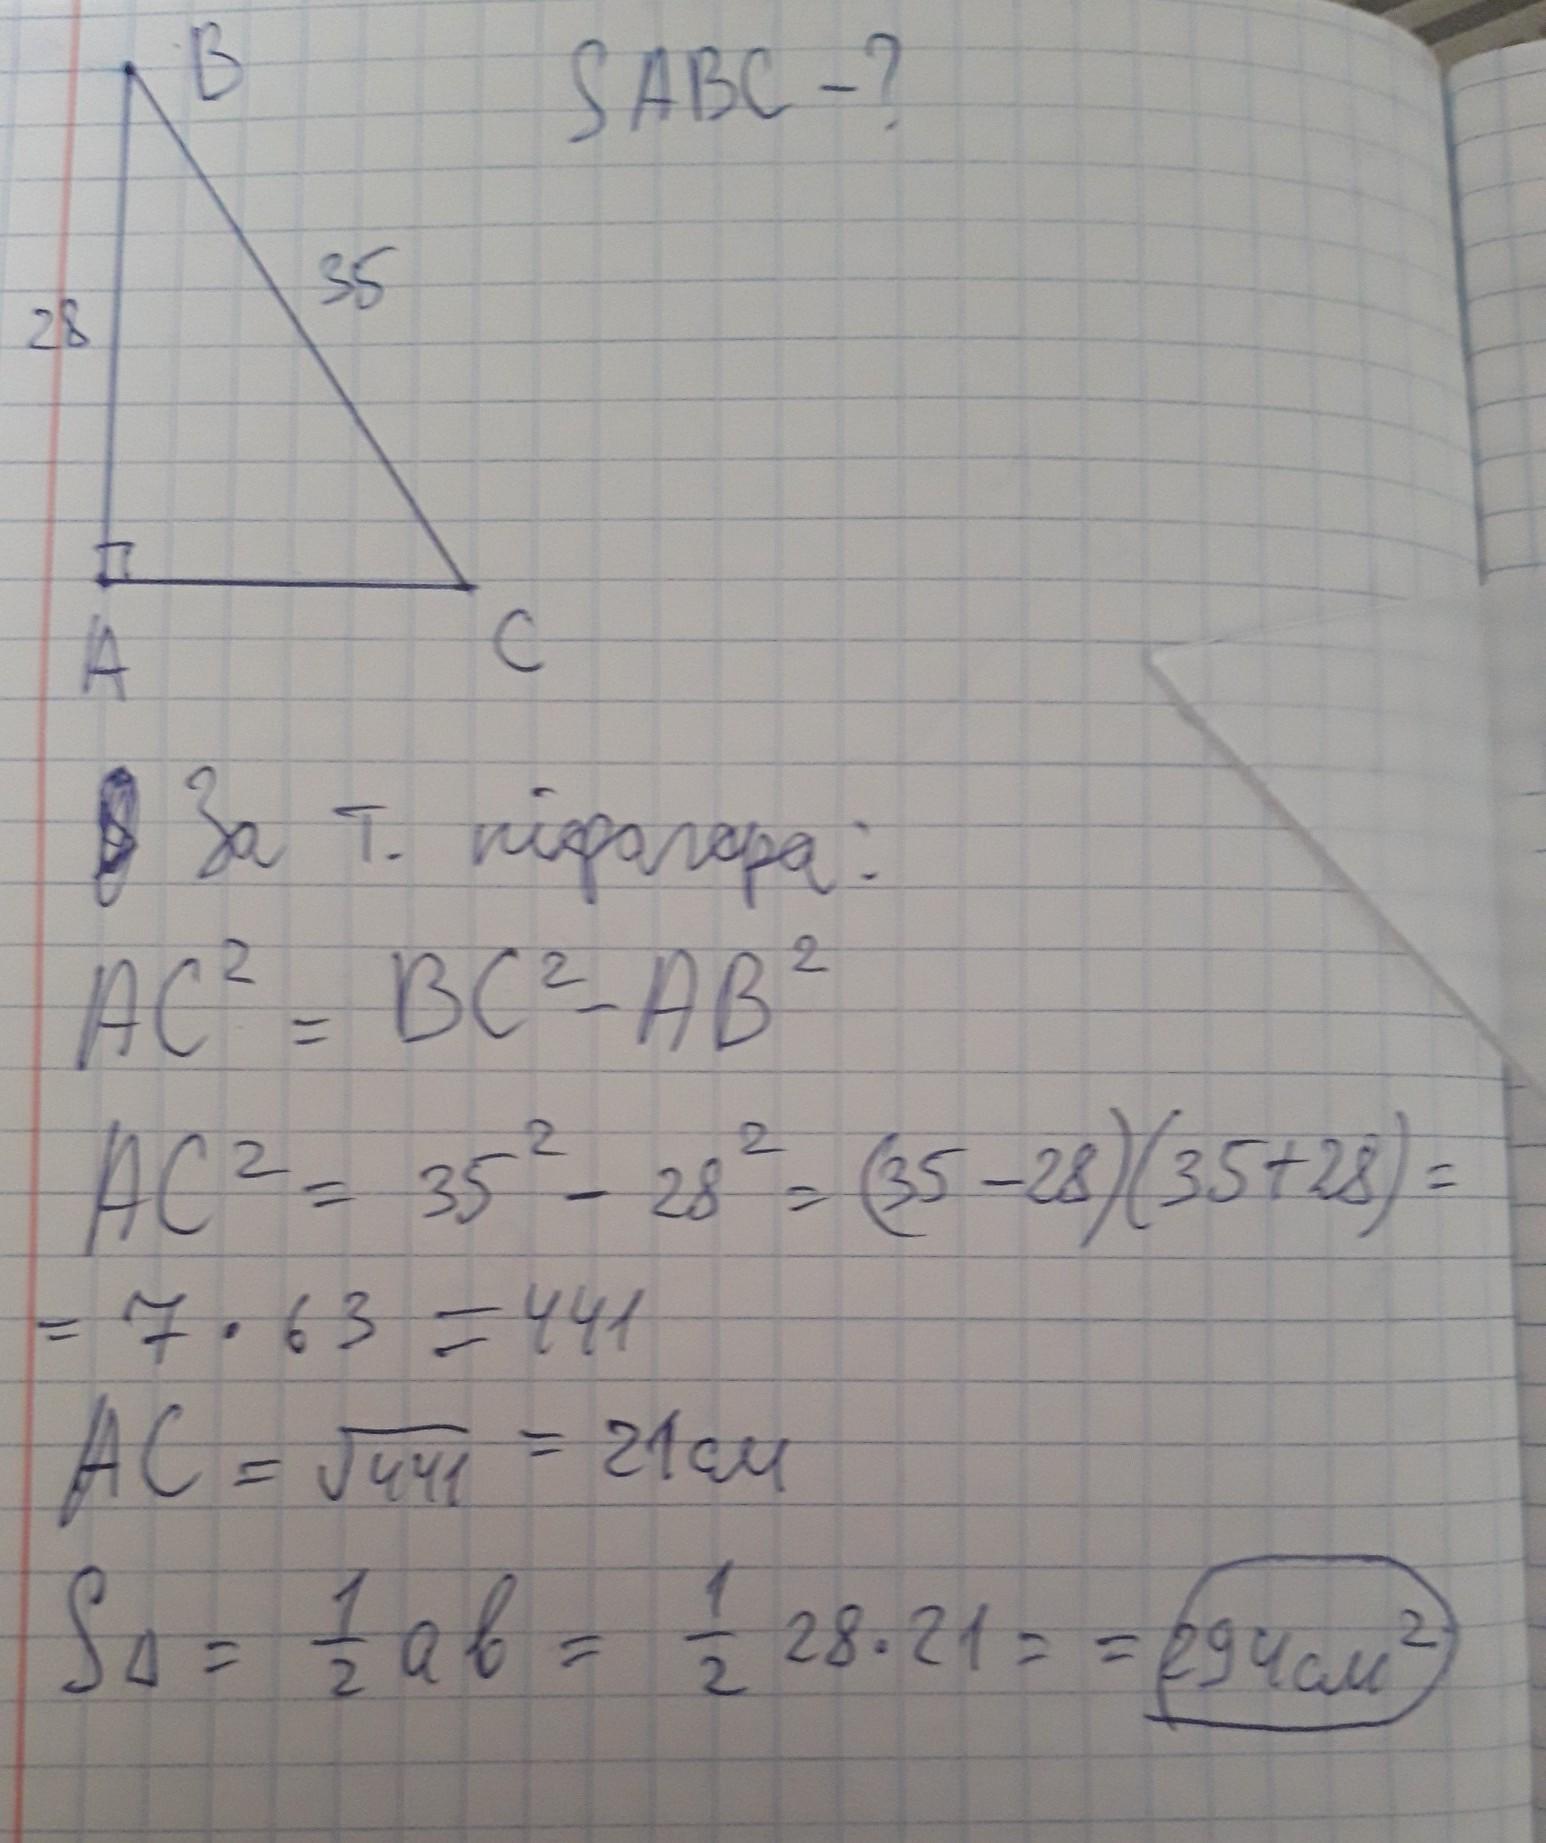 B
SABC - ?
35
28
A
C
За т. піфагора:
AC² = BC² - AB²
AC² = 35² - 28² = (35 - 28)(35 + 28) =
= 7 · 63 = 441
AC = √441 = 21см
S△ = 1/2 ab = 1/2 28 · 21 = = 294см²